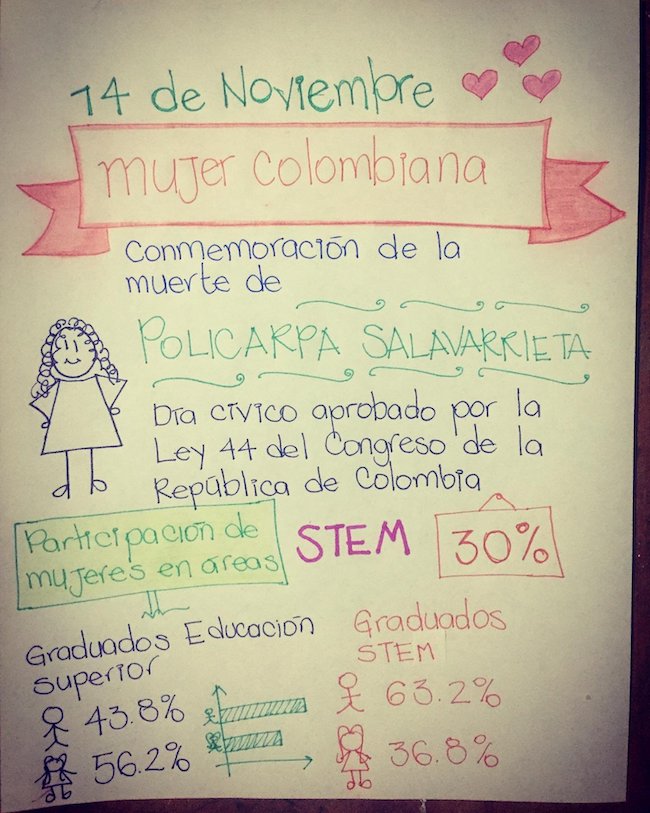 14 de Noviembre
mujer colombiana
Conmemoración de la
muerte de
POLICARPA SALAVARRIETA
Día cívico aprobado por la
Ley 44 del Congreso de la
República de Colombia
Participación de
mujeres en áreas
STEM
30%
Graduados Educación
superior
43.8%
56.2%
Graduados
STEM
63.2%
36.8%